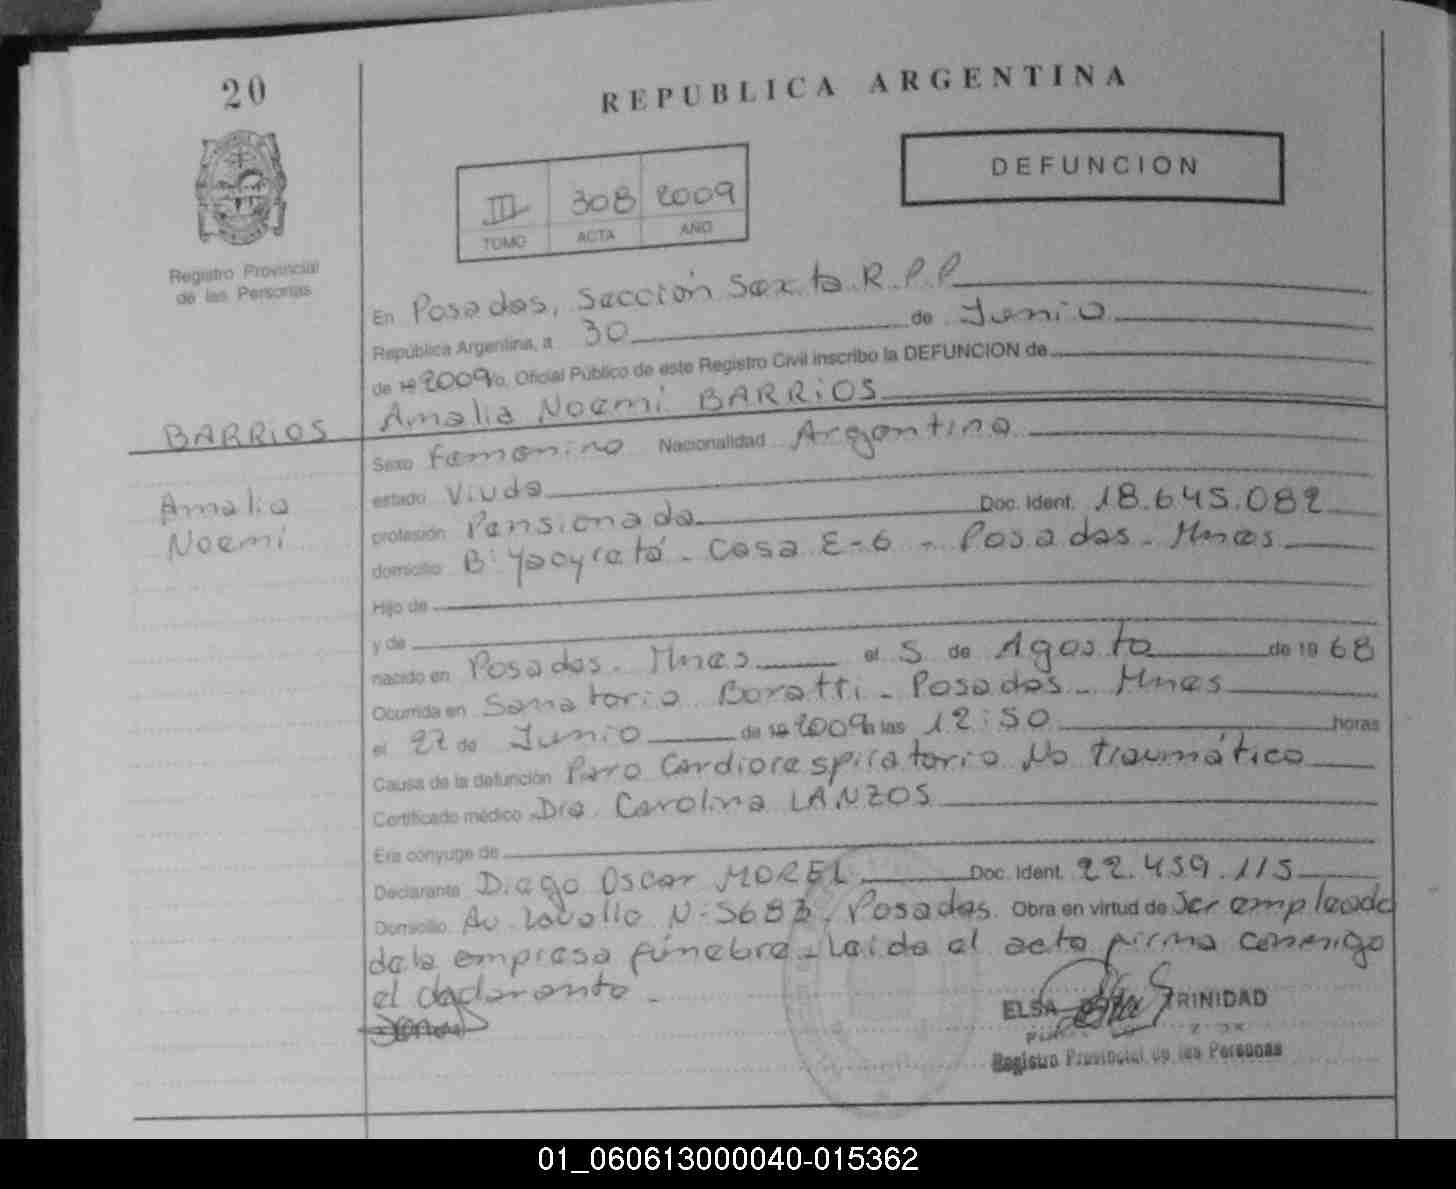 20
REPUBLICA ARGENTINA
DEFUNCION
III 308 2009
TOMO ACTA AÑO
Registro Provincial
de las Personas
En Posadas, Sección Sexta R.P.P
República Argentina, a 30 de Junio
de 19 2009 Yo, Oficial Público de este Registro Civil inscribo la DEFUNCION de
Amalia Noemí BARRIOS
BARRIOS
Amalia
Noemí
Sexo Femenino Nacionalidad Argentina
estado Viuda
profesión Pensionada Doc. Ident. 18.645.082
domicilio B: Yacyretá - Casa E-6 - Posadas - Mnes
Hijo de
y de
nacido en Posadas - Mnes el 5 de Agosto de 19 68
Ocurrida en Sanatorio Boratti - Posadas - Mnes
el 27 de Junio de 19 2009 a las 12:50 horas
Causa de la defunción Paro Cardiorespiratorio No traumático
Certificado médico Dra. Carolina LANZOS
Era cónyuge de
Declarante Diego Oscar MOREL Doc. Ident. 22.459.115
Domicilio Av. Lavalle N: 5683, Posadas. Obra en virtud de Ser empleado
de la empresa fúnebre - Leída el acta firma conmigo
el declarante -
ELSA TRINIDAD
Registro Provincial de las Personas
01_060613000040-015362